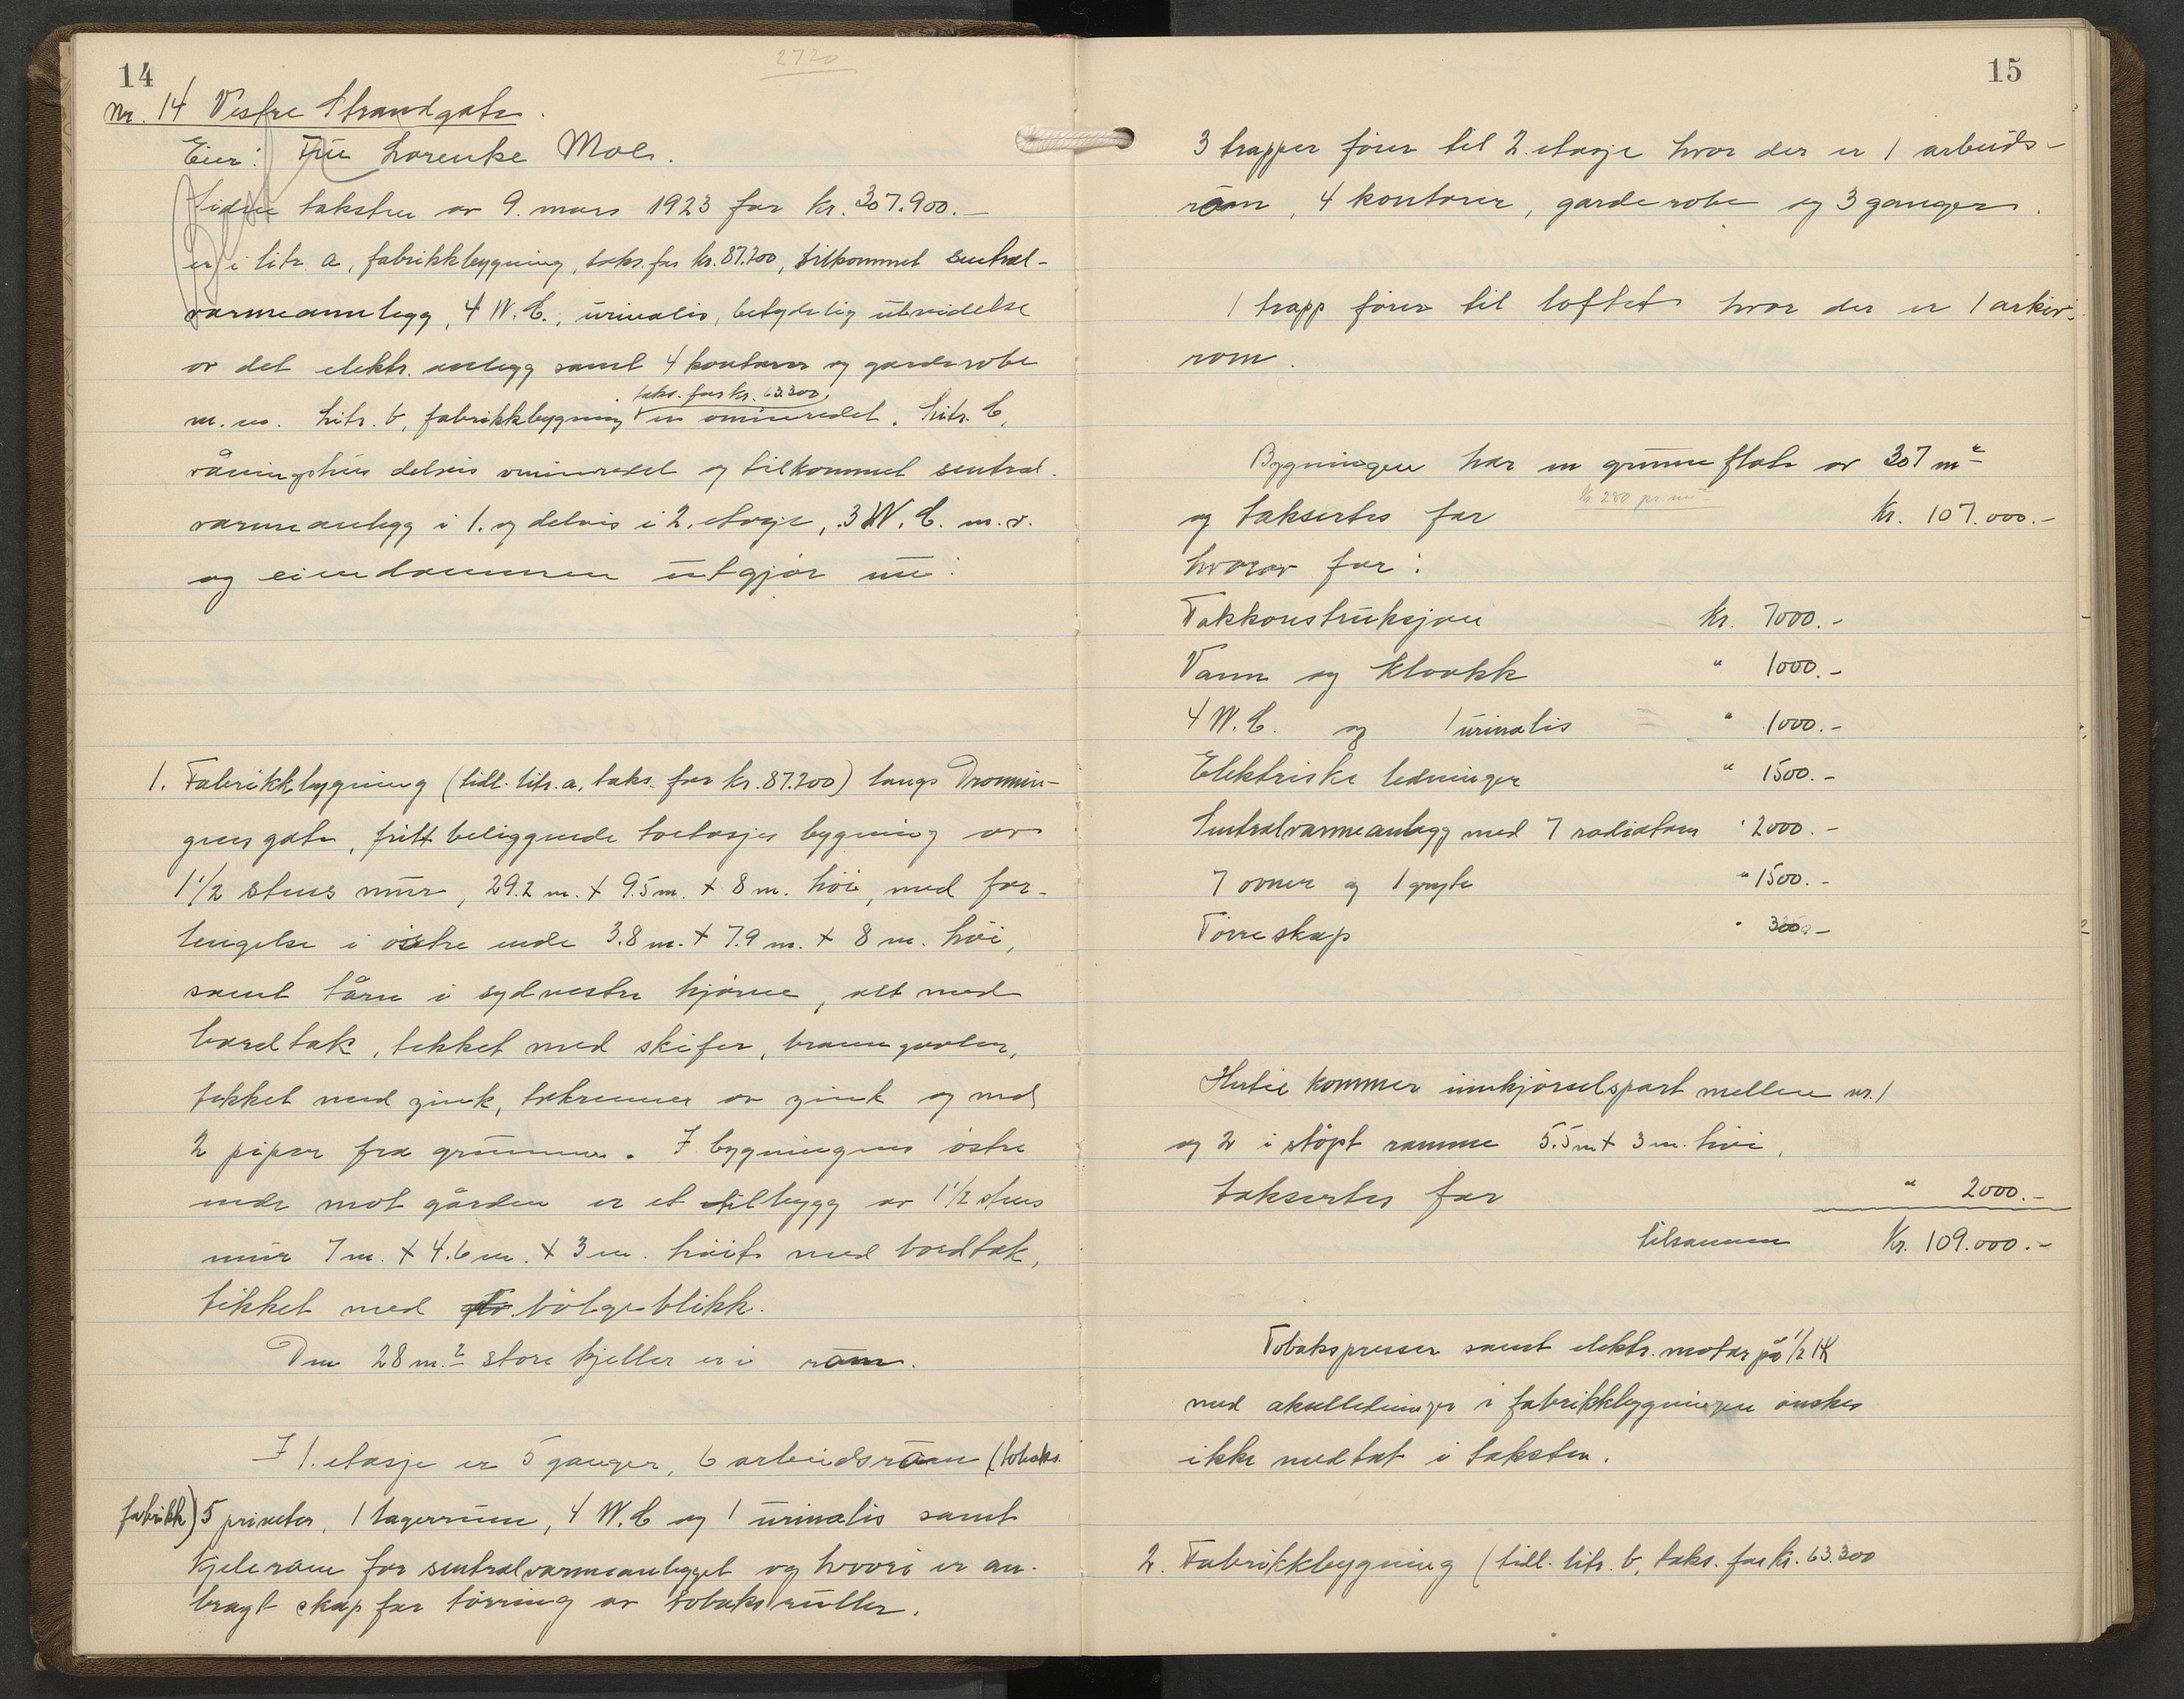 14
2720
Nr. 14 Vestre Strandgate.
Eier: Fru Lorentse Moe.
Siden taksten av 9. mars 1923 for kr. 307.900.-
er i litr. a, fabrikkbygning, taks. for kr. 87.200, tilkommet sentral-
varmeannlegg, 4 W.C., urinalis, betydelig utvidelse
av det elektr. anlegg samt 4 kontorer og garderobe
taks. for kr. 63.300,
m. m. Litr. b, fabrikkbygning er ominnredet. Litr. C,
våningshus delvis ominnredet og tilkommet sentral-
varmeanlegg i 1. og delvis i 2. etasje, 3 W.C. m.v.
og eiendommen utgjør nu:
1. Fabrikkbygning (tidl. litr. a, taks. for kr. 87.200) langs Dronnin-
gens gate, fritt beliggende toetasjes bygning av
1 1/2 stens mur, 29.2 m. + 9.5 m. + 8 m. høi, med for-
lengelse i østre ende 3.8 m. + 7.9 m. + 8 m. høi,
samt tårn i sydvestre hjørne, alt med
bordtak, tekket med skifer, branngavler,
tekket med zink, takrenner av zink og med
2 piper fra grunnen. I bygningens østre
ende mot gården er et tilbygg av 1 1/2 stens
mur 7 m. + 4.6 m. + 3 m. høit med bordtak,
tekket med bølgeblikk.
Den 28 m.2 store kjeller er i rom.
I 1. etasje er 5 ganger, 6 arbeidsrom (tobaks-
fabrikk) 5 priveter, 1 lagerrum, 4 W.C og 1 urinalis samt
kjelerom for sentralvarmeanlegget og hvori er an-
bragt skap for tørring av tobaksruller.
15
3 trapper fører til 2. etasje hvor der er 1 arbeids-
rom, 4 kontorer, garderobe og 3 ganger.
1 trapp fører til loftet hvor der er 1 arkiv-
rom.
Bygningen har en grunnflate av 307 m2
Kr. 280 pr. m2
og takseres for Kr. 107.000.-
hvorav for:
Takkonstruksjon Kr. 7000.-
Vann og kloakk " 1000.-
4 W.C. og 1 urinalis " 1000.-
Elektriske ledninger " 1500.-
Sentralvarmeanlegg med 7 radiatorer " 2000.-
7 ovner og 1 gryte " 1500.-
Tørreskap " 300.-
Hertil kommer innkjørselsport mellem nr. 1
og 2 i støpt ramme 5.5 m + 3 m. høi,
takseres for " 2000.-
tilsammen Kr. 109.000.-
Tobakspresser samt elektr. motor på 1/2 HK
med akselledninger i fabrikkbygningen ønskes
ikke medtat i taksten.
2. Fabrikkbygning (tidl. litr. b, taks. for kr. 63.300